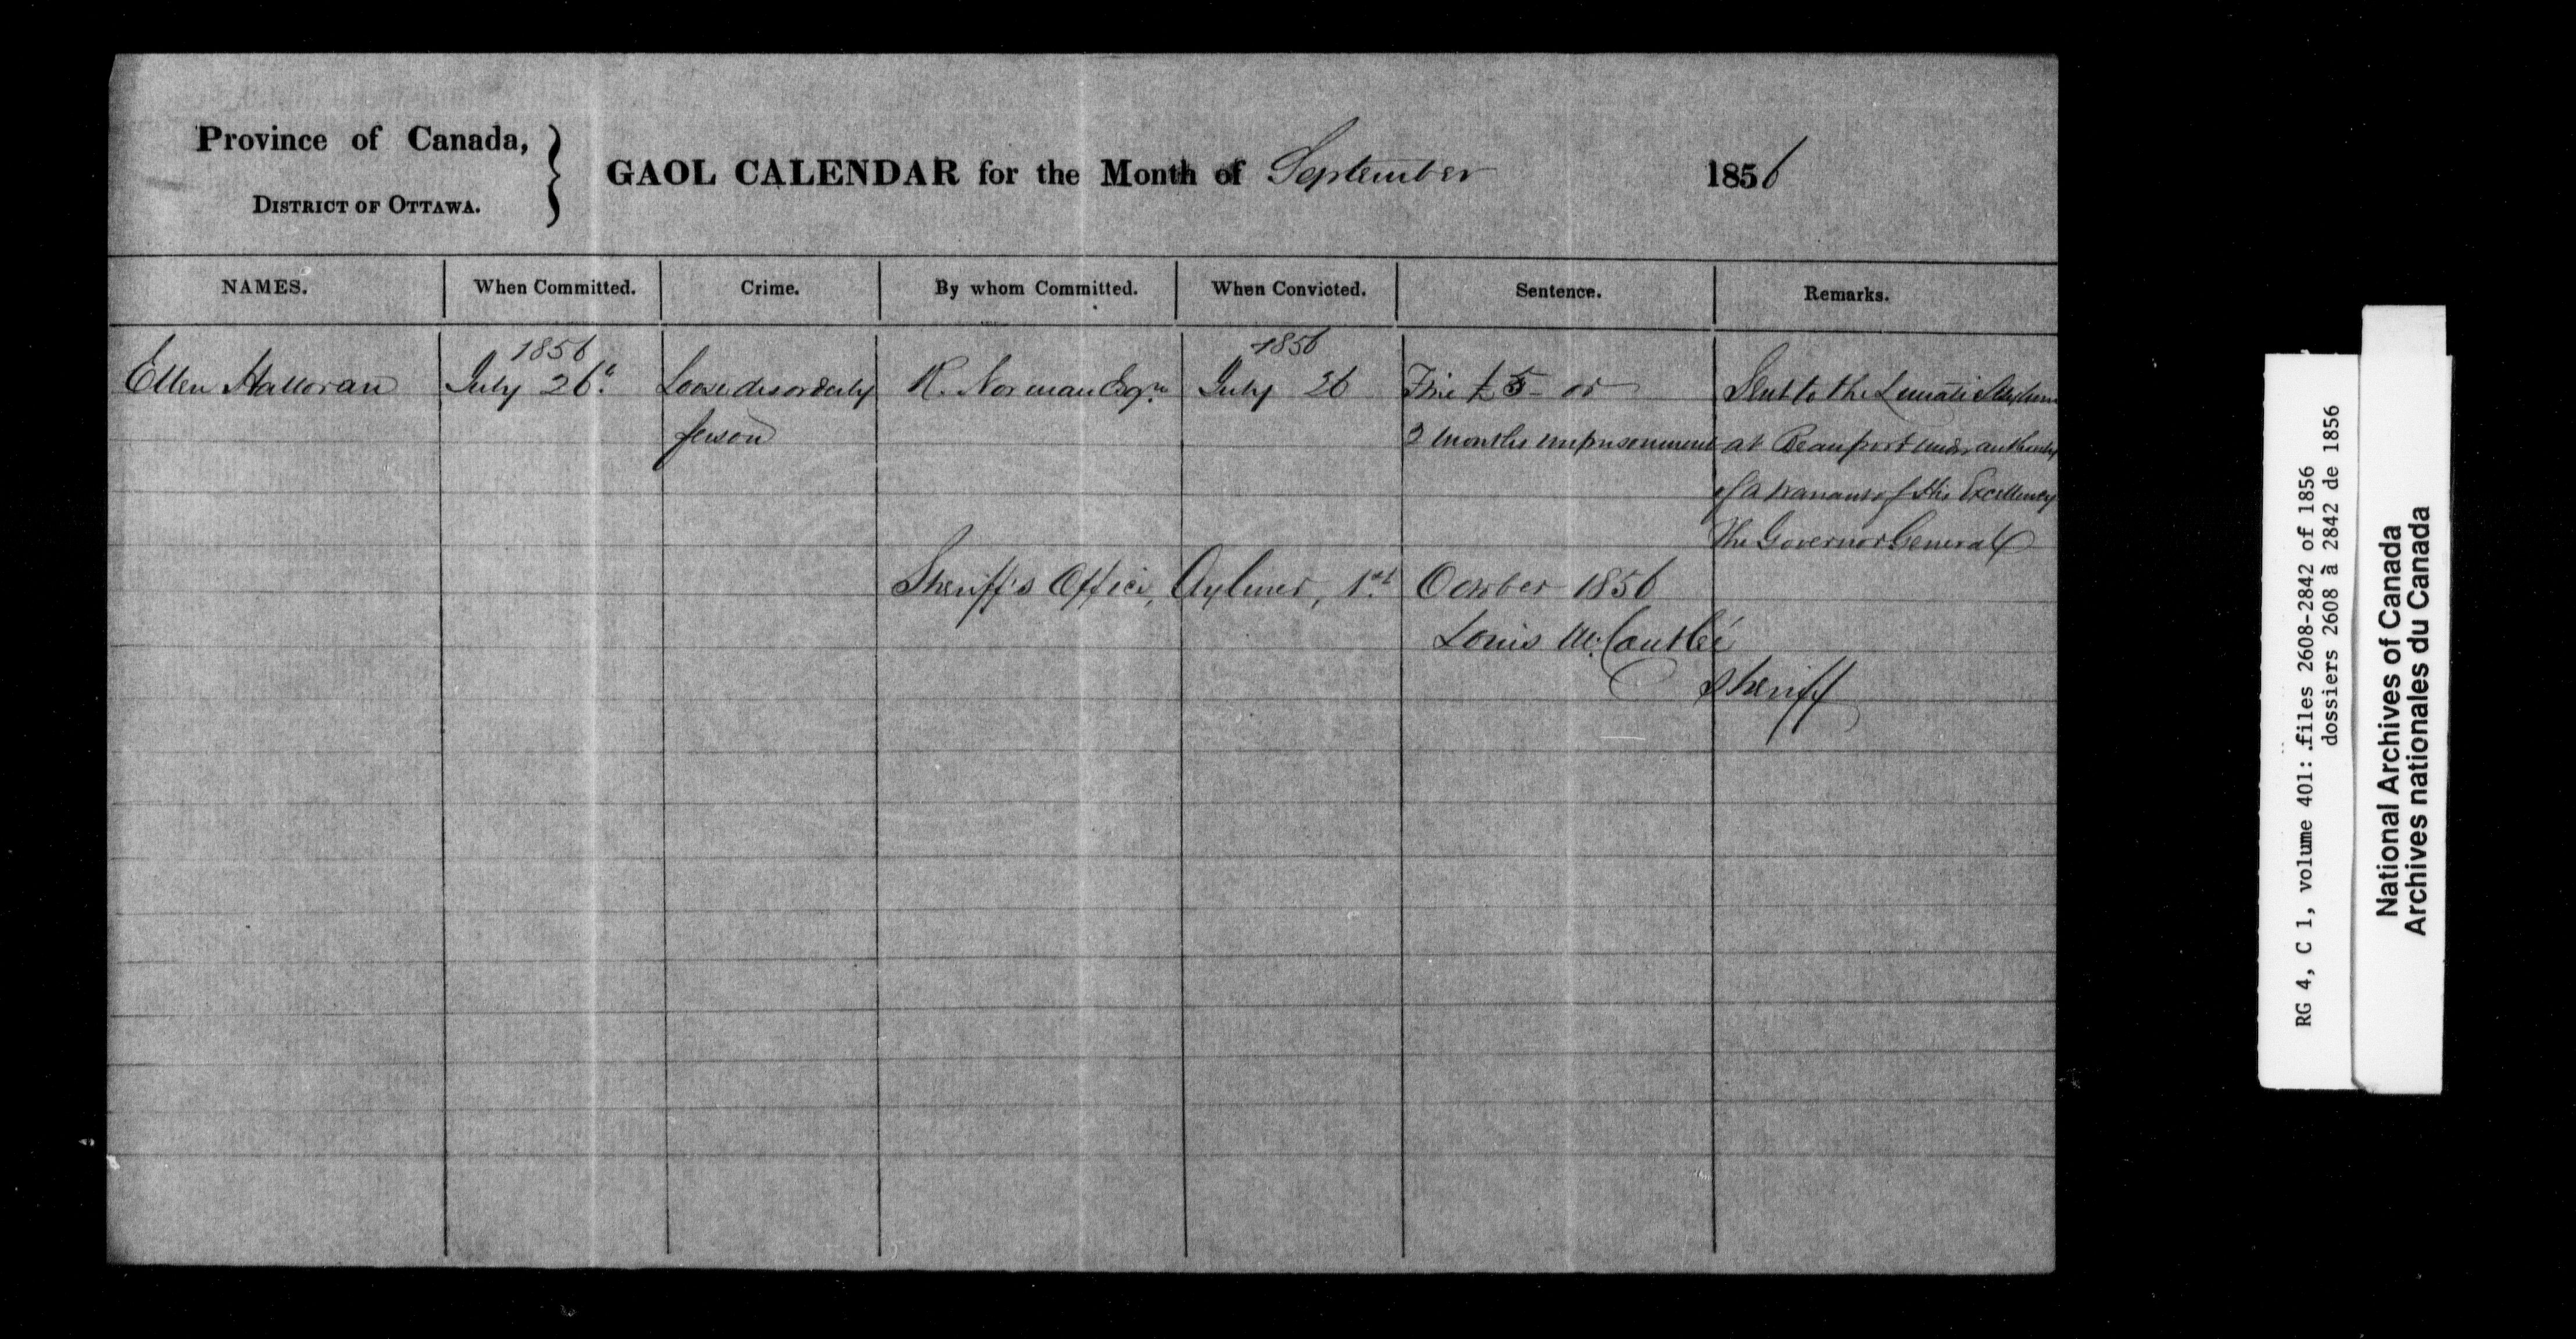 Province of Canada,
DISTRICT OF OTTAWA.
GAOL CALENDAR for the Month of September 1856
NAMES. When Committed. Crime. By whom Committed. When Convicted. Sentence. Remarks.
1856 1856
Ellen Halloran July 26th Loose disorderly R. Norman Esqre July 26 Fine £5 - or Sent to the Lunatic Asylum
person 2 months imprisonment at Beauport under authority
of a warrant of His Excellency
The Governor General
Sheriff's Office, Aylmer, 1st October 1856
Louis M. Coutlée
Sheriff
RG 4, C 1, volume 401: files 2608-2842 of 1856
dossiers 2608 à 2842 de 1856
National Archives of Canada
Archives nationales du Canada